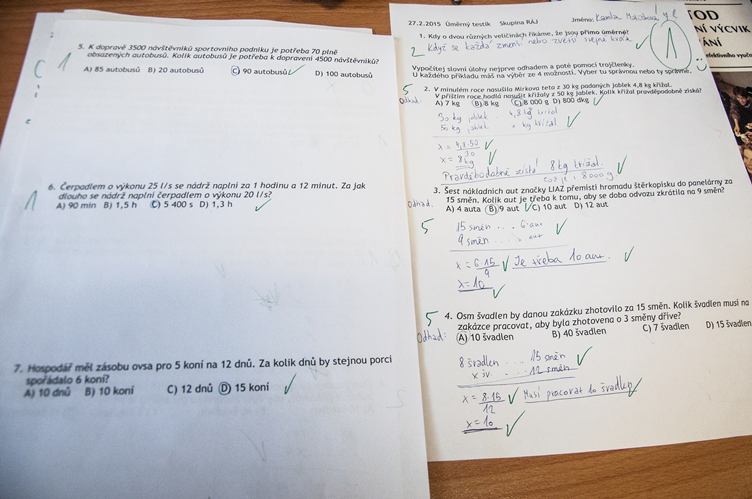 5. K dopravě 3500 návštěvníků sportovního podniku je potřeba 70 plně
obsazených autobusů. Kolik autobusů je potřeba k dopravení 4500 návštěvníků?
A) 85 autobusů B) 20 autobusů C) 90 autobusů D) 100 autobusů
1
6. Čerpadlem o výkonu 25 l/s se nádrž naplní za 1 hodinu a 12 minut. Za jak
dlouho se nádrž naplní čerpadlem o výkonu 20 l/s?
A) 90 min B) 1,5 h C) 5 400 s D) 1,3 h
1
7. Hospodář měl zásobu ovsa pro 5 koní na 12 dnů. Za kolik dnů by stejnou porci
spořádalo 6 koní?
A) 10 dnů B) 10 koní C) 12 dnů D) 15 koní
27.2.2015 Úměrný testík Skupina RÁJ Jméno:
1. Kdy o dvou různých veličinách říkáme, že jsou přímo úměrné?
2 Když se každá zmenší nebo zvětší stejně krát.
1
Vypočítej slovní úlohy nejprve odhadem a poté pomocí trojčlenky.
U každého příkladu máš na výběr ze 4 možností. Vyber tu správnou nebo ty správné.
5 2. V minulém roce nasušila Mirkova teta z 30 kg padaných jablek 4,8 kg křížal.
Odhad. V příštím roce hodlá nasušit křížaly z 50 kg jablek. Kolik křížal pravděpodobně získá?
A) 7 kg B) 8 kg C) 8 000 g D) 800 dkg
30 kg jablek 4,8 kg křížal
50 kg jablek x kg křížal
x = 4,8·50
30
x = 8 kg
Pravděpodobně získá 8 kg křížal.
což je i 8000 g
3. Šest nákladních aut značky LIAZ přemístí hromadu štěrkopísku do panelárny za
Odhad. 15 směn. Kolik aut je třeba k tomu, aby se doba odvozu zkrátila na 9 směn?
A) 4 auta B) 9 aut C) 10 aut D) 12 aut
5 15 směn ... 6 aut
9 směn ... x aut
x = 6·15
9
Je třeba 10 aut.
x = 10
5 4. Osm švadlen by danou zakázku zhotovilo za 15 směn. Kolik švadlen musí na
Odhad: zakázce pracovat, aby byla zhotovena o 3 směny dříve?
A) 10 švadlen B) 40 švadlen C) 7 švadlen D) 15 švadlen
8 švadlen ... 15 směn
x šv. ... 12 směn
x = 8·15
12
Musí pracovat 10 švadlen
x = 10
TOD
NÍ VÝCVIK